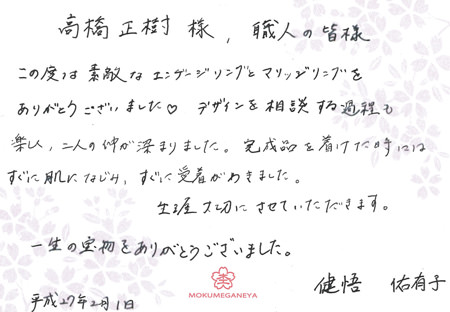 高橋正樹様, 職人の皆様
この度は素敵なエンゲージリングとマリッジリングを
ありがとうございました♡ デザインを相談する過程も
楽しく、二人の仲が深まりました。完成品を着けた時には
すぐに肌になじみ、すぐに愛着がわきました。
生涯大切にさせていただきます。
一生の宝物をありがとうございました。
MOKUMEGANEYA
健悟 佑有子
平成27年2月1日